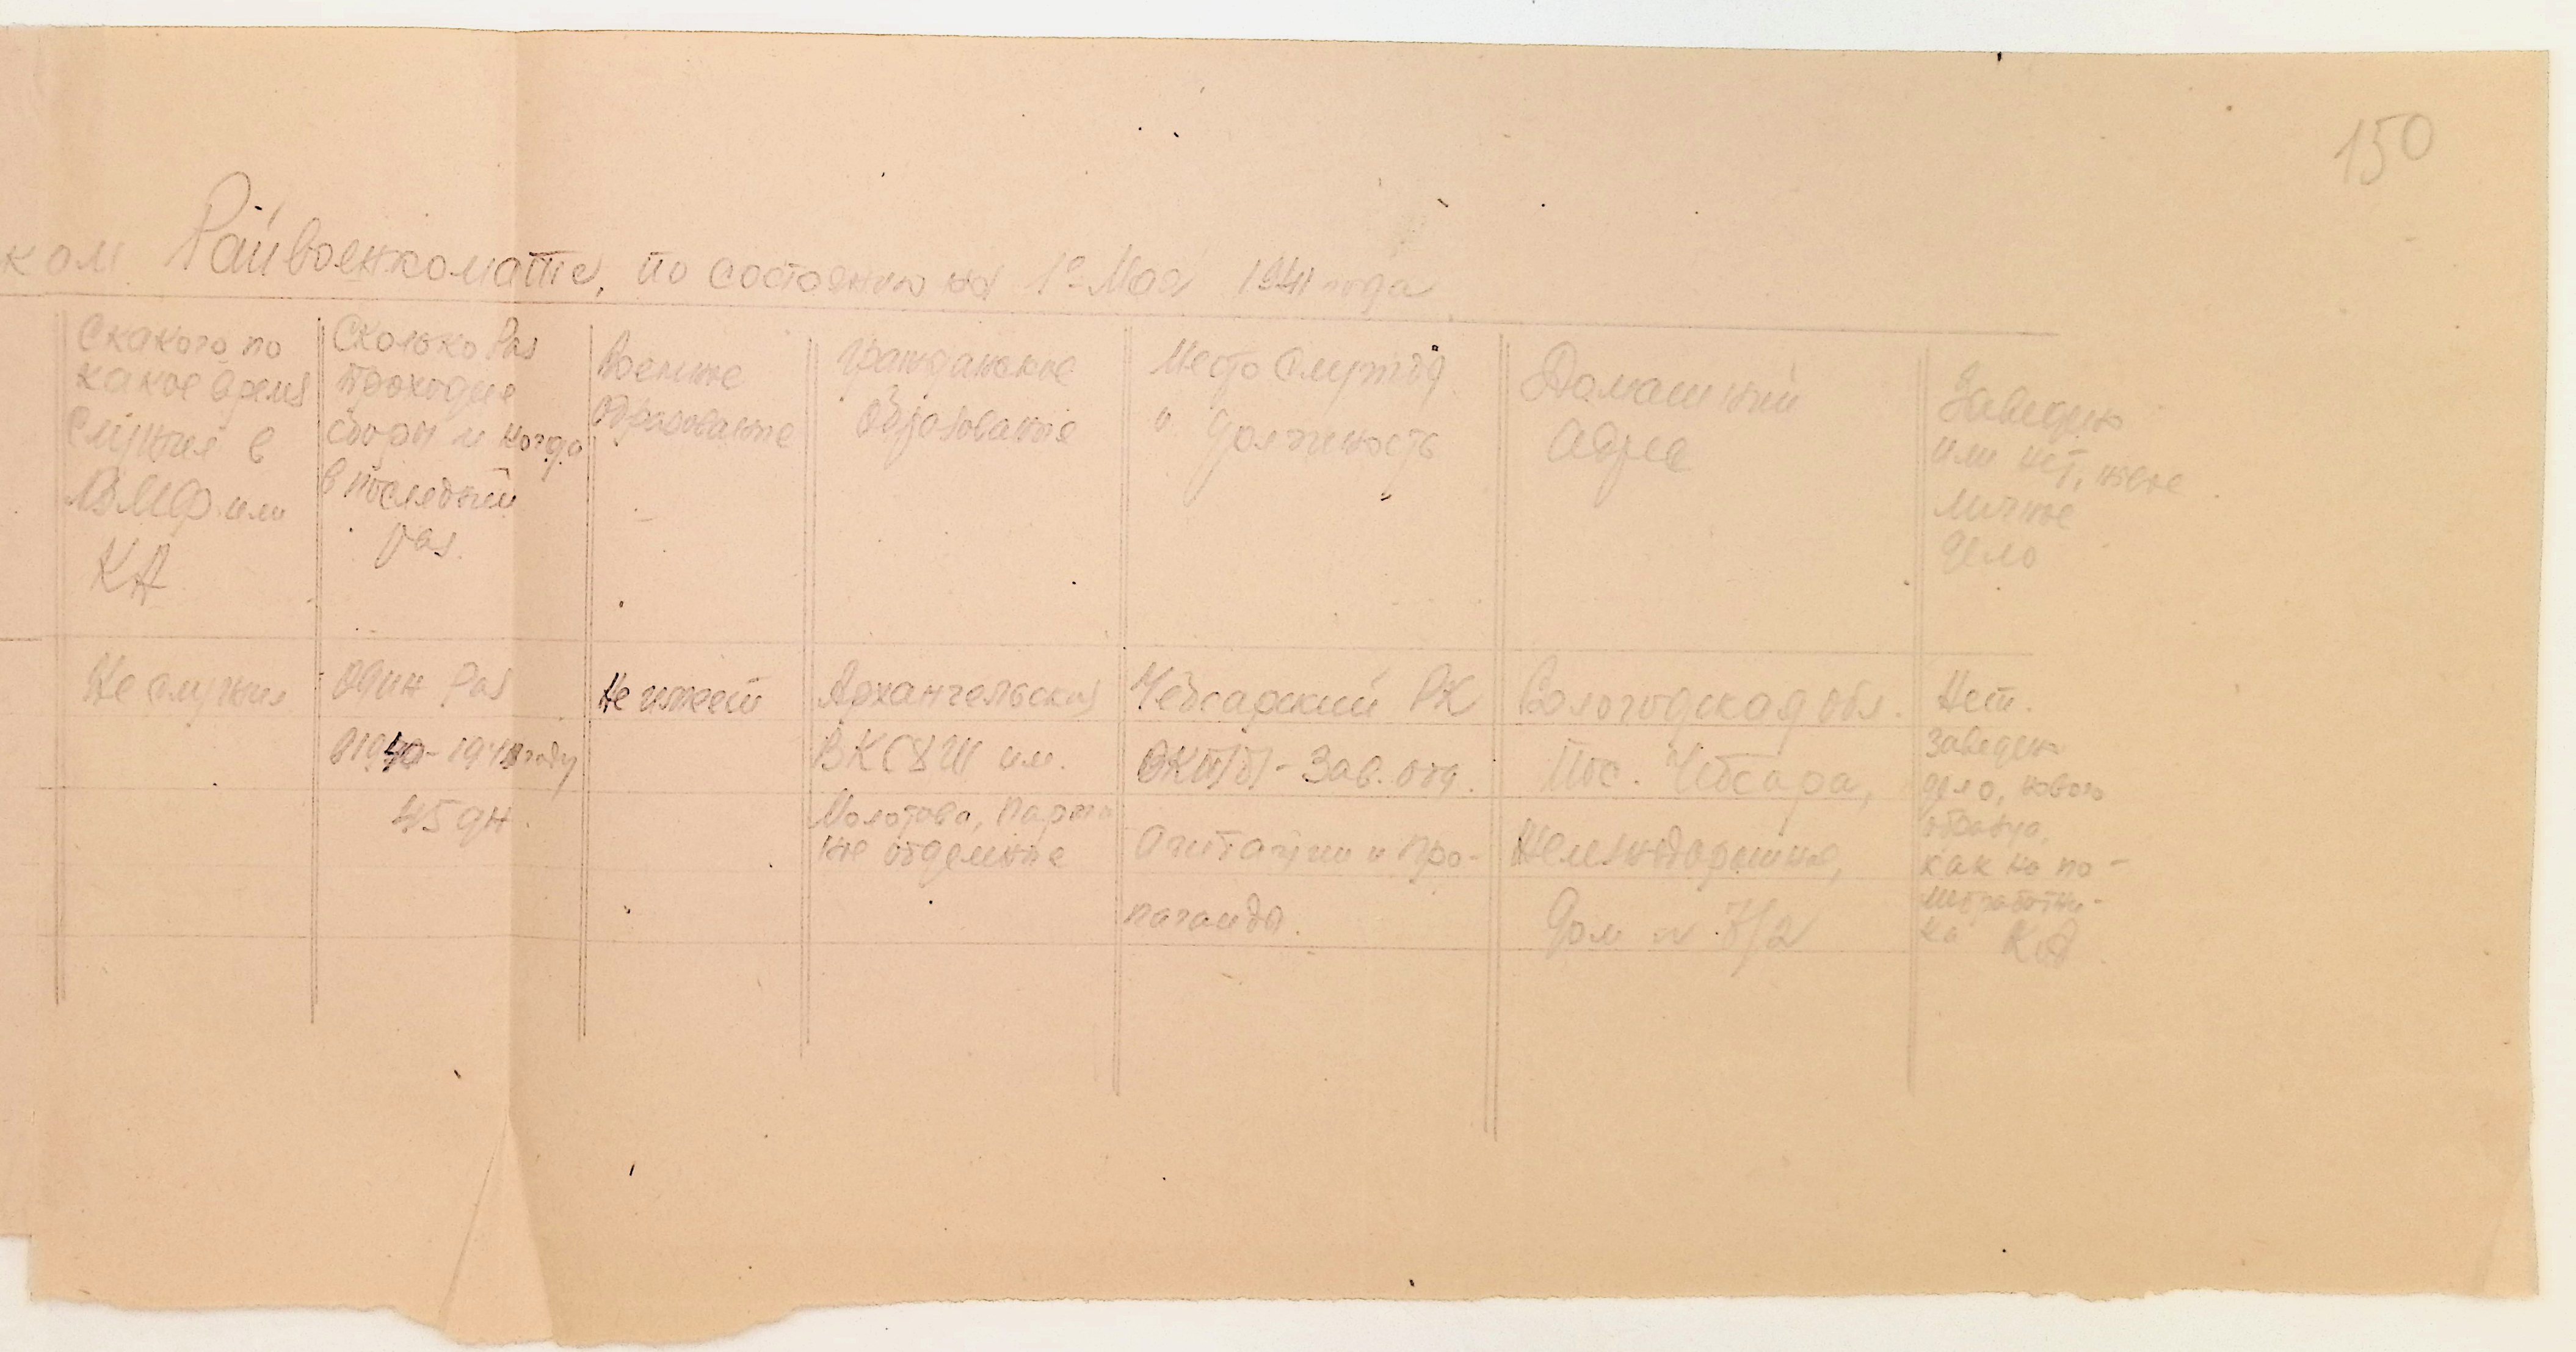 150
ком Райвоенкомате, по состоянию на 1е Мая 1941 года
С какого по
какое время
служил в
ВМФ или
КА
Сколько раз
проходил
сборы и когда
в последний
раз.
Военное
образование
Гражданское
образование
Место службы
и должность
Домашний
адрес
Заведено
или нет, новое
личное
дело
Не служил
Один раз
в 1940-1941 году
45 дн.
Не имеет
Архангельская
ВКСХШ им.
Молотова, партий
ное отделение
Чебсарский РК
ВКП/б/-Зав. отд.
Агитации и про-
паганды.
Вологодская обл.
Пос. Чебсара,
Железнодорожная,
Дом № 7/2
Нет.
Заведено
дело, нового
образца,
как на по-
литработни-
ка КА.